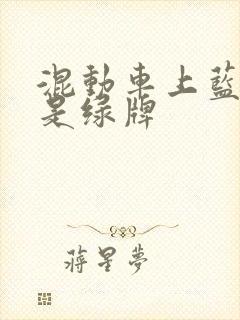 混動車上藍
是綠牌
蔣星夢